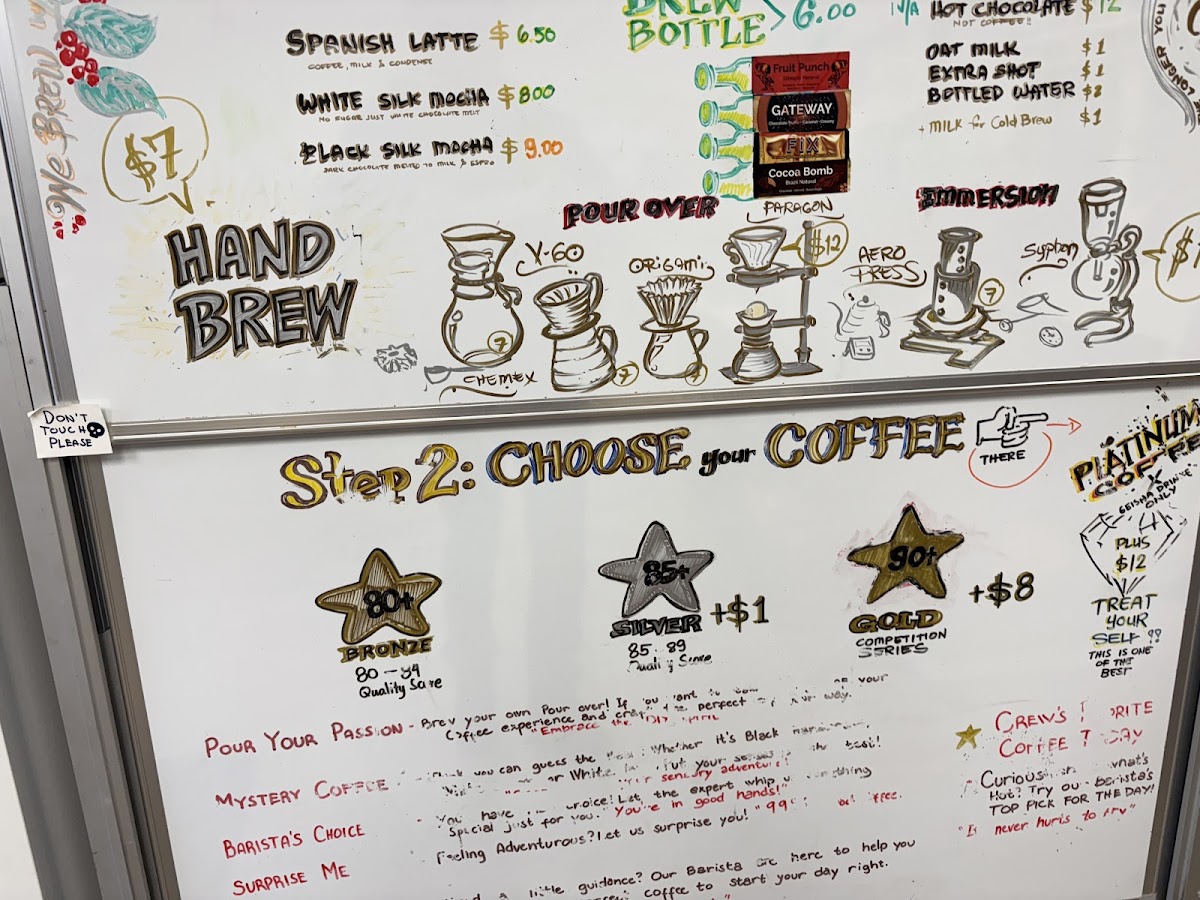 We BREW
$7
SPANISH LATTE $6.50
COFFEE, MILK & CONDENSE
WHITE SILK MOCHA $8.00
NO SUGAR JUST WHITE CHOCOLATE MELT
BLACK SILK MOCHA $9.00
DARK CHOCOLATE MELTED TO MILK & ESPRO
BREW
BOTTLE > 6.00
Fruit Punch
GATEWAY
FIX
Cocoa Bomb
Brazil Natural
N/A HOT CHOCOLATE $12
NOT COFFEE!!
OAT MILK $1
EXTRA SHOT $1
BOTTLED WATER $2
+ MILK for Cold Brew $1
HAND
BREW
POUR OVER
IMMERSION
CHEMEX
7
V-60
7
ORIGAMI
7
PARAGON
$12
AERO
PRESS
7
Syphon
DON'T
TOUCH
PLEASE
Step 2: CHOOSE your COFFEE
THERE
PLATINUM
COFFEE
GEISHA DRINK
ONLY
PLUS
$12
TREAT
YOUR
SELF !!
THIS IS ONE
OF THE
BEST
80+
BRONZE
80-84
Quality Score
85+
SILVER +$1
85-89
Quality Score
90+
GOLD +$8
COMPETITION
SERIES
POUR YOUR PASSION - Brew your own Pour over! If you want to your
Coffee experience and craft the perfect way.
"Embrace the
MYSTERY COFFEE - you can guess the Whether it's Black
or White, put your senses to the test!
sensory adventure!
BARISTA'S CHOICE - You have choice! Let the expert whip something
Special just for you. "You're in good hands!"
SURPRISE ME Feeling Adventurous? Let us surprise you!
little guidance? Our Barista are here to help you
coffee to start your day right.
CREW'S
COFFEE
Curious what's
Hot? Try our barista's
TOP PICK FOR THE DAY!
never hurts to try"